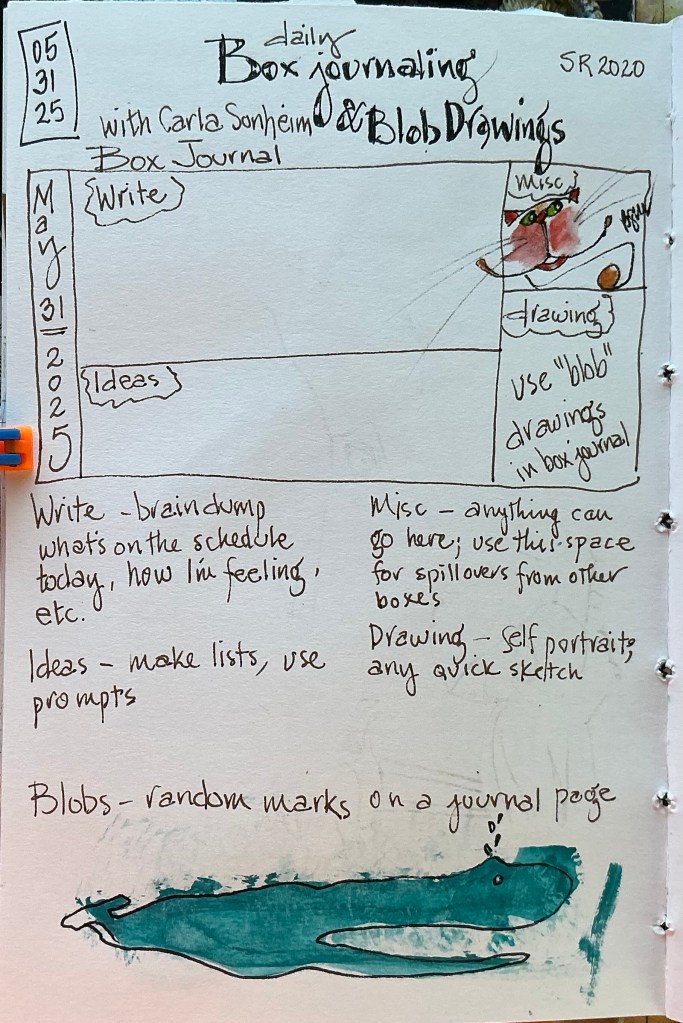 05
31
25
daily
Box journaling
SR 2020
with Carla Sonheim & Blob Drawings
Box Journal
May 31 2025
Write
Misc
Ideas
drawing
use "blob"
drawings
in box journal
Write - braindump
what's on the schedule
today, how I'm feeling,
etc.
Ideas - make lists, use
prompts
Misc - anything can
go here; use this space
for spillovers from other
boxes
Drawing - self portrait,
any quick sketch
Blobs - random marks on a journal page